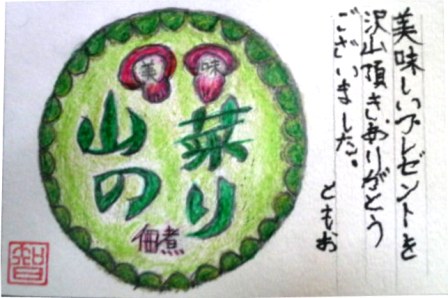 美味しいプレゼントを
沢山頂き、ありがとう
ございました。
ともお
美味
山菜
のり
佃煮
智